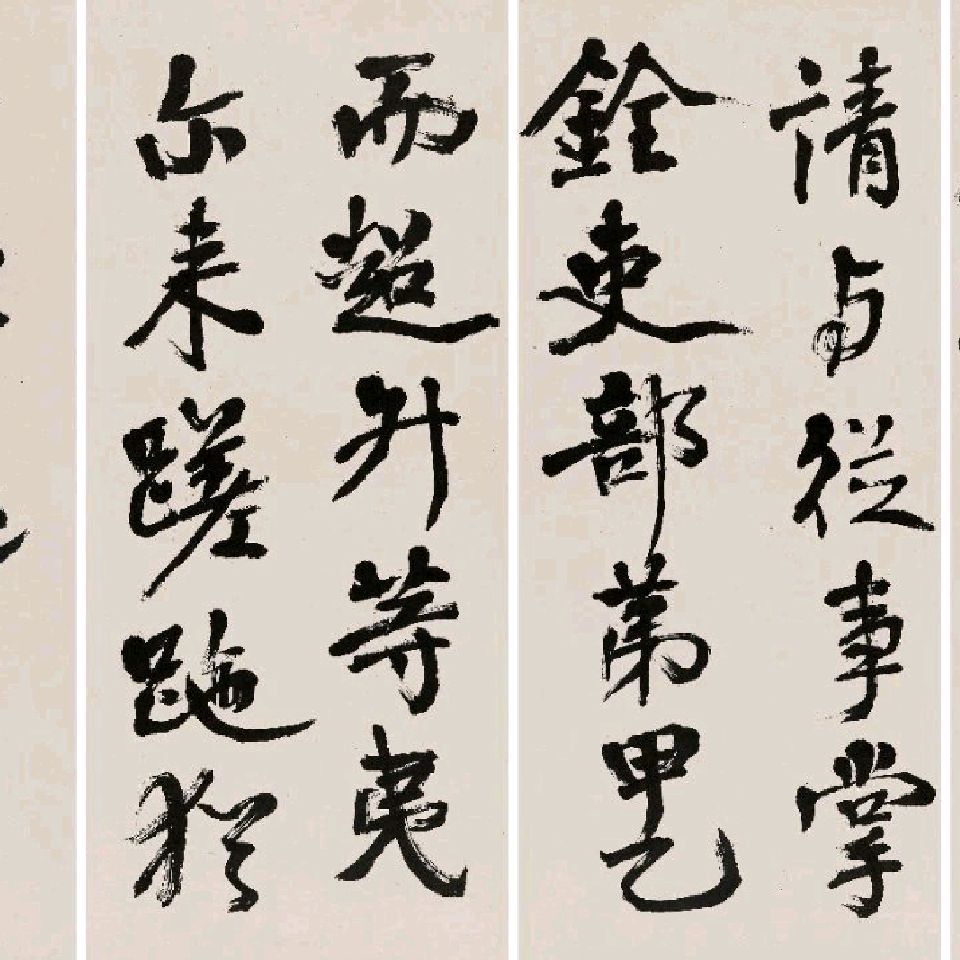 請与從事掌
銓吏部第甲乙
而超升等夷
尔来蹉跎猶